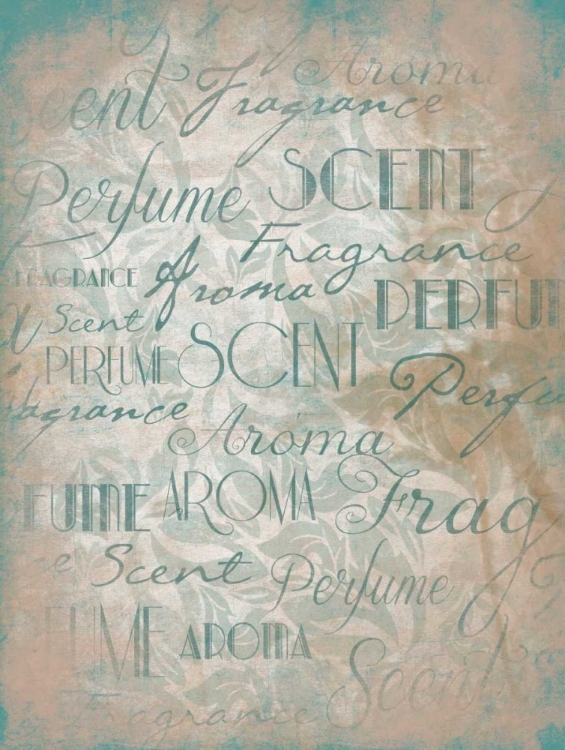 Aroma
cent Fragrance
Perfume SCENT
Fragrance
FRAGRANCE Aroma PERFU
Scent
PERFUME SCENT
Perfu
agrance
Aroma
FUME AROMA Frag
e Scent Perfume
FUME AROMA
Scent
agrance